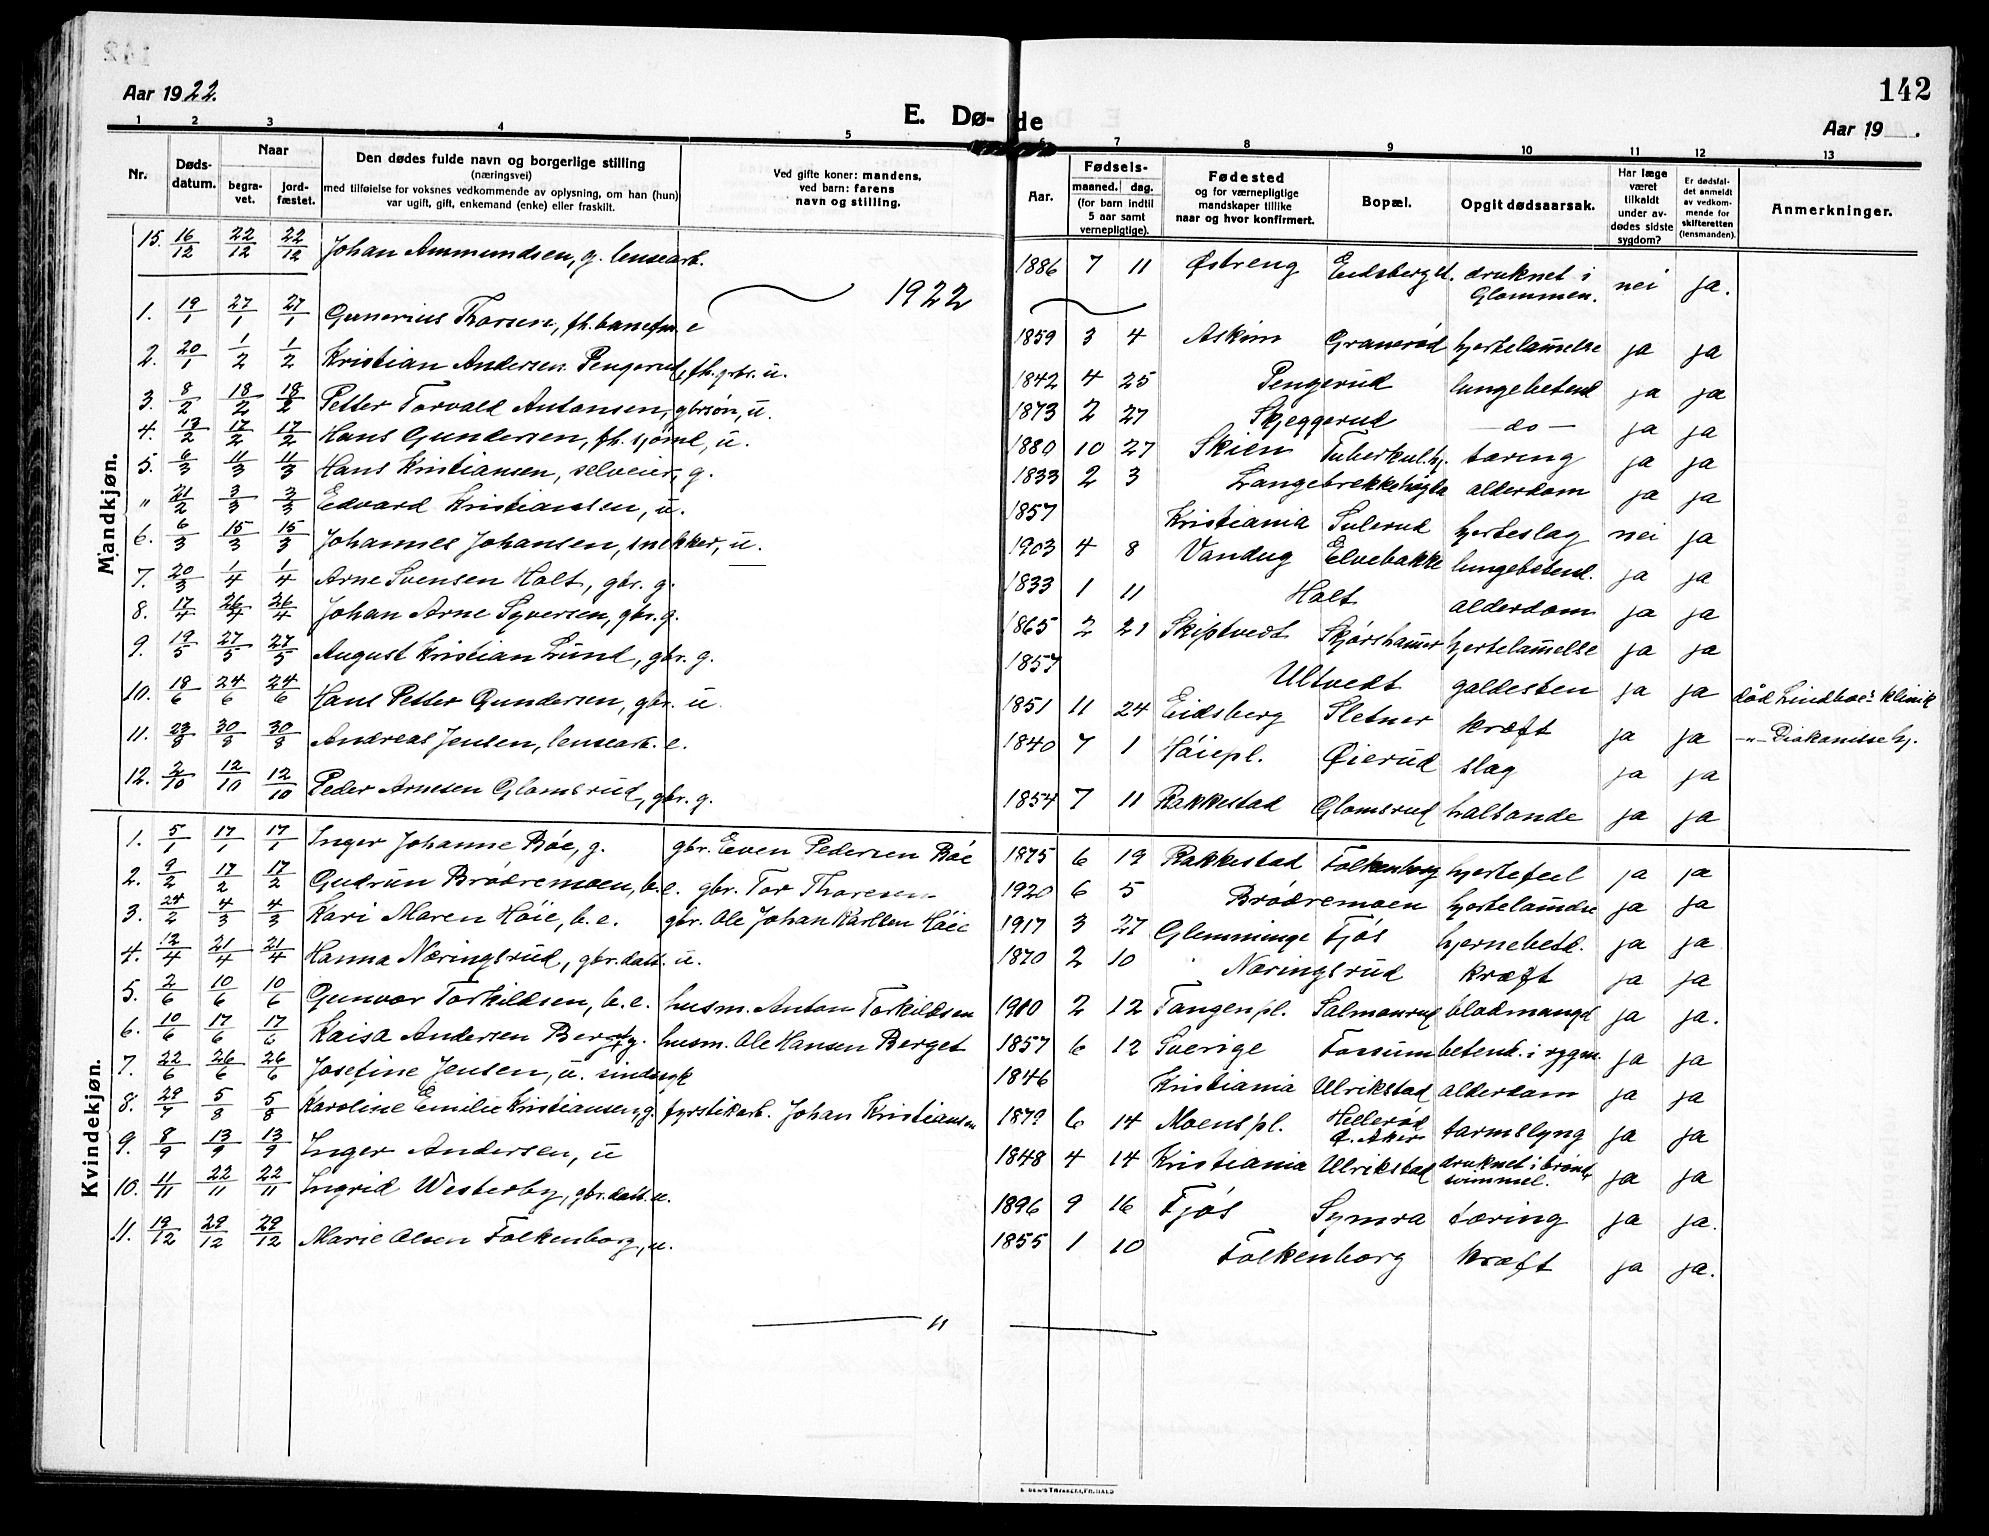 142
Aar 1922.
E. Dø-de
Aar 19 .
1 2 3 4 5 7 8 9 10 11 12 13
Nr.
Døds-datum.
Naar
begra-vet.
jord-fæstet.
Den dødes fulde navn og borgerlige stilling
(næringsvei)
med tilføielse for voksnes vedkommende av oplysning, om han (hun)
var ugift, gift, enkemand (enke) eller fraskilt.
Ved gifte koner: mandens,
ved barn: farens
navn og stilling.
Aar.
Fødsels-
maaned. dag.
(for barn indtil
5 aar samt
vernepligtige).
Fødested
og for værnepligtige
mandskaper tillike
naar og hvor konfirmert.
Bopæl.
Opgit dødsaarsak.
Har læge
været
tilkaldt
under av-
dødes sidste
sygdom?
Er dødsfal-
det anmeldt
av vedkom-
mende for
skifteretten
(lensmanden).
Anmerkninger.
Mandkjøn.
15. 16/12 22/12 22/12 Johan Ammundsen, g. lensearb. 1886 7 11 Østreng Eidsberg st. druknet i Glommen. nei ja.
1922
1. 19/1 27/1 27/1 Gunerius Thorsen, fh. banefm. e 1859 3 4 Askim Granerød hjertelammelse ja ja
2. 20/1 1/2 1/2 Kristian Andersen Pengerud, fh. gbr. u. 1842 4 25 Pengerud lungebetend ja ja
3. 8/2 18/2 18/2 Petter Torvald Antonsen, gbrsøn, u. 1873 2 27 Skjeggerud — do — ja ja
4. 13/2 17/2 17/2 Hans Gundersen, fh. sjøml, u. 1880 10 27 Skien Tuberkul.hj. tæring ja ja
5. 6/3 11/3 11/3 Hans Kristiansen, selveier, g. 1833 2 3 Langebrekke alderdom ja ja
" 21/2 3/3 3/3 Edvard Kristiansen, u. 1857 Kristiania Sulerud hjerteslag nei ja
6. 6/3 15/3 15/3 Johannes Johansen, snekker, u. 1903 4 8 Vandug Elvebakke lungebetend. ja ja
7. 20/3 1/4 1/4 Arne Svensen Holt, gbr. g. 1833 1 11 Holt alderdom ja ja
8. 17/4 26/4 26/4 Johan Arne Syversen, gbr. g. 1865 2 21 Skiptvedt Skjørshamer hjertelammelse ja ja
9. 19/5 27/5 27/5 August Kristian Lund, gbr. g. 1857 Ultvedt galdesten ja ja død Lindboes klinik
10. 18/6 24/6 24/6 Hans Petter Gundersen, gbr. u 1851 11 24 Eidsberg Sletner kræft ja ja —"— Diakonisse hj.
11. 23/8 30/8 30/8 Andreas Jensen, lensearb. e. 1840 7 1 Høiepl. Øierud slag ja ja
12. 2/10 12/10 12/10 Peder Arnesen Glomsrud, gbr. g. 1854 7 11 Rakkestad Glomsrud halsonde ja ja
Kvindekjøn.
1. 5/1 17/1 17/1 Inger Johanne Bøe, g. gbr. Even Pedersen Bøe 1875 6 19 Rakkestad Folkenborg hjertefeel ja ja
2. 9/2 17/2 17/2 Gudrun Brødremoen, b. e. gbr. Tor Thoresen 1920 6 5 Brødremoen hjertelammelse ja ja
3. 24/2 4/3 4/3 Kari Maren Høie, b. e. gbr. Ole Johan Karlsen Høie 1917 3 27 Glemminge Fjøs hjernebetd. ja ja
4. 12/4 21/4 21/4 Hanna Næringsrud, gbr.datt. u. 1870 2 10 Næringsrud kræft ja ja
5. 2/6 10/6 10/6 Gunvor Torkildsen, b. e. husm. Anton Torkildsen 1910 2 12 Tangen pl. Salmonrud blodmangel ja ja.
6. 10/6 17/6 17/6 Kaisa Andersen Berget g. husm. Ole Hansen Berget 1857 6 12 Sverige Fossum betend. i rygm. ja ja
7. 22/6 26/6 26/6 Josefine Jensen, u. sindssyk 1846 Kristiania Ulrikstad alderdom ja ja
8. 29/7 5/8 5/8 Karoline Emilie Kristiansen, g. fyrstikarb. Johan Kristiansen 1879 6 14 Moens pl. Hellerød Ø. Aker tarmslyng ja ja
9. 8/9 13/9 13/9 Inger Andersen, u 1848 4 14 Kristiania Ulrikstad druknet i brønd, svimmel. ja ja
10. 11/11 22/11 22/11 Ingrid Westerby, gbr.datt. u. 1896 9 16 Fjøs Symra tæring ja ja.
11. 19/12 29/12 29/12 Marie Olsen Folkenborg, u. 1855 1 10 Folkenborg kræft ja ja.
"